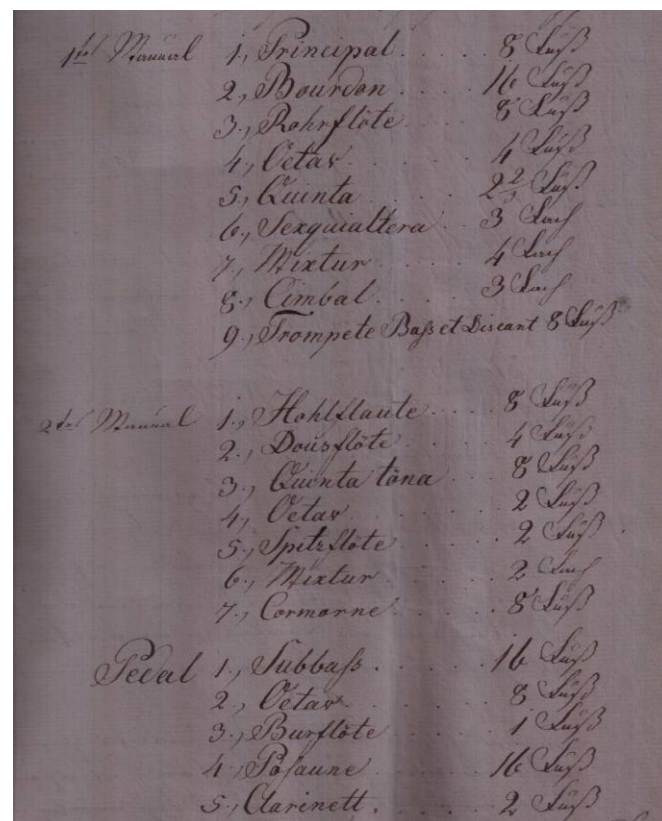 1tes Manual 1., Principal . . . . . 8 Fuß
2., Bourdon . . . . . 16 Fuß
3., Rohrflöte . . . . . 8 Fuß
4., Octav . . . . . 4 Fuß
5., Quinta . . . . . 2 2/3 Fuß
6., Sexquialtera . . . 3 fach
7., Mixtur . . . . . 4 fach
8., Cimbal . . . . . 3 fach
9., Trompete Baß et Discant 8 Fuß
2tes Manual 1., Hohlflaute . . . . 8 Fuß
2., Dousflöte . . . . 4 Fuß
3., Quinta töna . . . . 8 Fuß
4., Octav . . . . . 2 Fuß
5., Spitzflöte . . . . 2 Fuß
6., Mixtur . . . . . 2 fach
7., Cormorne . . . . 8 Fuß
Pedal 1., Subbaß . . . . . 16 Fuß
2., Octav . . . . . 8 Fuß
3., Burflöte . . . . 1 Fuß
4., Posaune . . . . 16 Fuß
5., Clarinett . . . . 2 Fuß